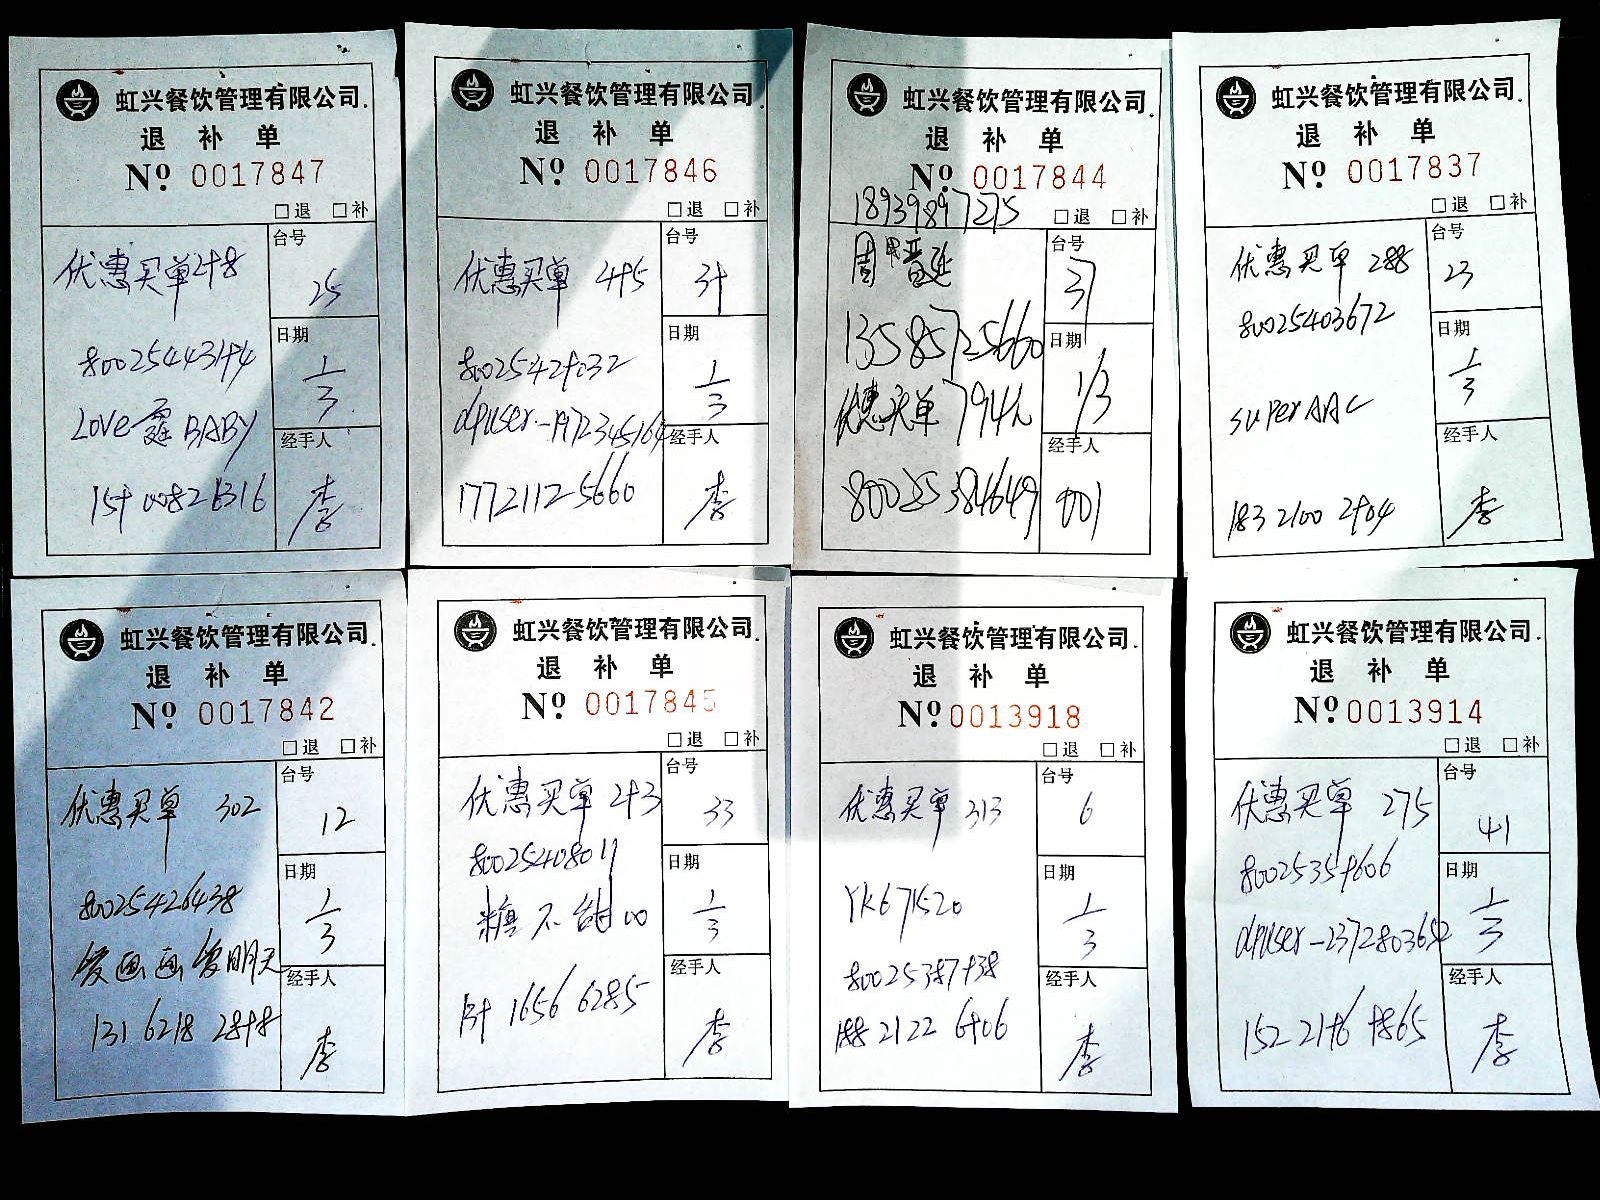 虹兴餐饮管理有限公司.
退 补 单
Nº 0017847
□退 □补
台号
优惠买单 298
25
日期
1/3
LOVE霆BABY
经手人
李
虹兴餐饮管理有限公司.
退 补 单
Nº 0017846
□退 □补
台号
优惠买单 495
39
日期
80025429032
1/3
dpuser-1972345164
经手人
17721125660
李
虹兴餐饮管理有限公司.
退 补 单
Nº 0017844
18939897275
□退 □补
台号
37
13585725660
日期
1/3
优惠买单 794元
经手人
80025384649
001
虹兴餐饮管理有限公司.
退 补 单
Nº 0017837
□退 □补
台号
优惠买单 288
23
80025403672
日期
1/3
superAAC
经手人
183 2100 2904
李
虹兴餐饮管理有限公司.
退 补 单
Nº 0017842
□退 □补
台号
优惠买单 302
12
日期
80025426438
1/3
爱画画爱明天
经手人
131 6218 2898
李
虹兴餐饮管理有限公司.
退 补 单
Nº 0017845
□退 □补
台号
优惠买单 293
33
80025408011
日期
糖不甜00
1/3
经手人
139 1656 6285
李
虹兴餐饮管理有限公司.
退 补 单
Nº 0013918
□退 □补
台号
优惠买单 313
6
日期
YK671520
1/3
80025387938
经手人
188 2122 6906
李
虹兴餐饮管理有限公司.
退 补 单
Nº 0013914
□退 □补
台号
优惠买单 275
41
80025359606
日期
dpuser-2372803652
1/3
经手人
152 2196 9865
李